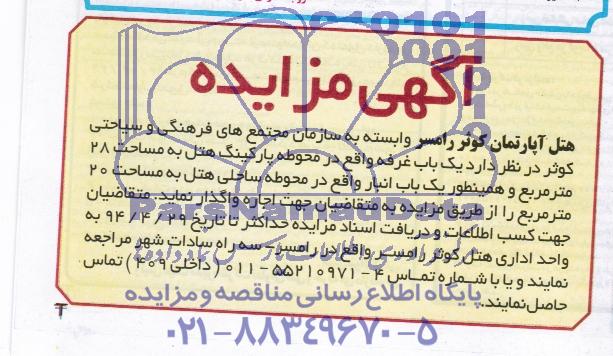 آگهی مزایده
هتل آپارتمان کوثر رامسر وابسته به سازمان مجتمع های فرهنگی و سیاحتی
کوثر در نظر دارد یک باب غرفه واقع در محوطه پارکینگ هتل به مساحت ۲۸
مترمربع و همینطور یک باب انبار واقع در محوطه ساحلی هتل به مساحت ۲۰
مترمربع را از طریق مزایده به متقاضیان جهت اجاره واگذار نماید. متقاضیان
جهت کسب اطلاعات و دریافت اسناد مزایده حداکثر تا تاریخ ۹۴/۴/۲۹ به
واحد اداری هتل کوثر رامسر واقع در رامسر- سه راه سادات شهر مراجعه
نمایند و یا با شماره تماس ۴- ۵۵۲۱۰۹۷۱ -۰۱۱ (داخلی ۴۰۹) تماس
حاصل نمایند.
پایگاه اطلاع رسانی مناقصه و مزایده
۰۲۱-۸۸۳۴۹۶۷۰-۵